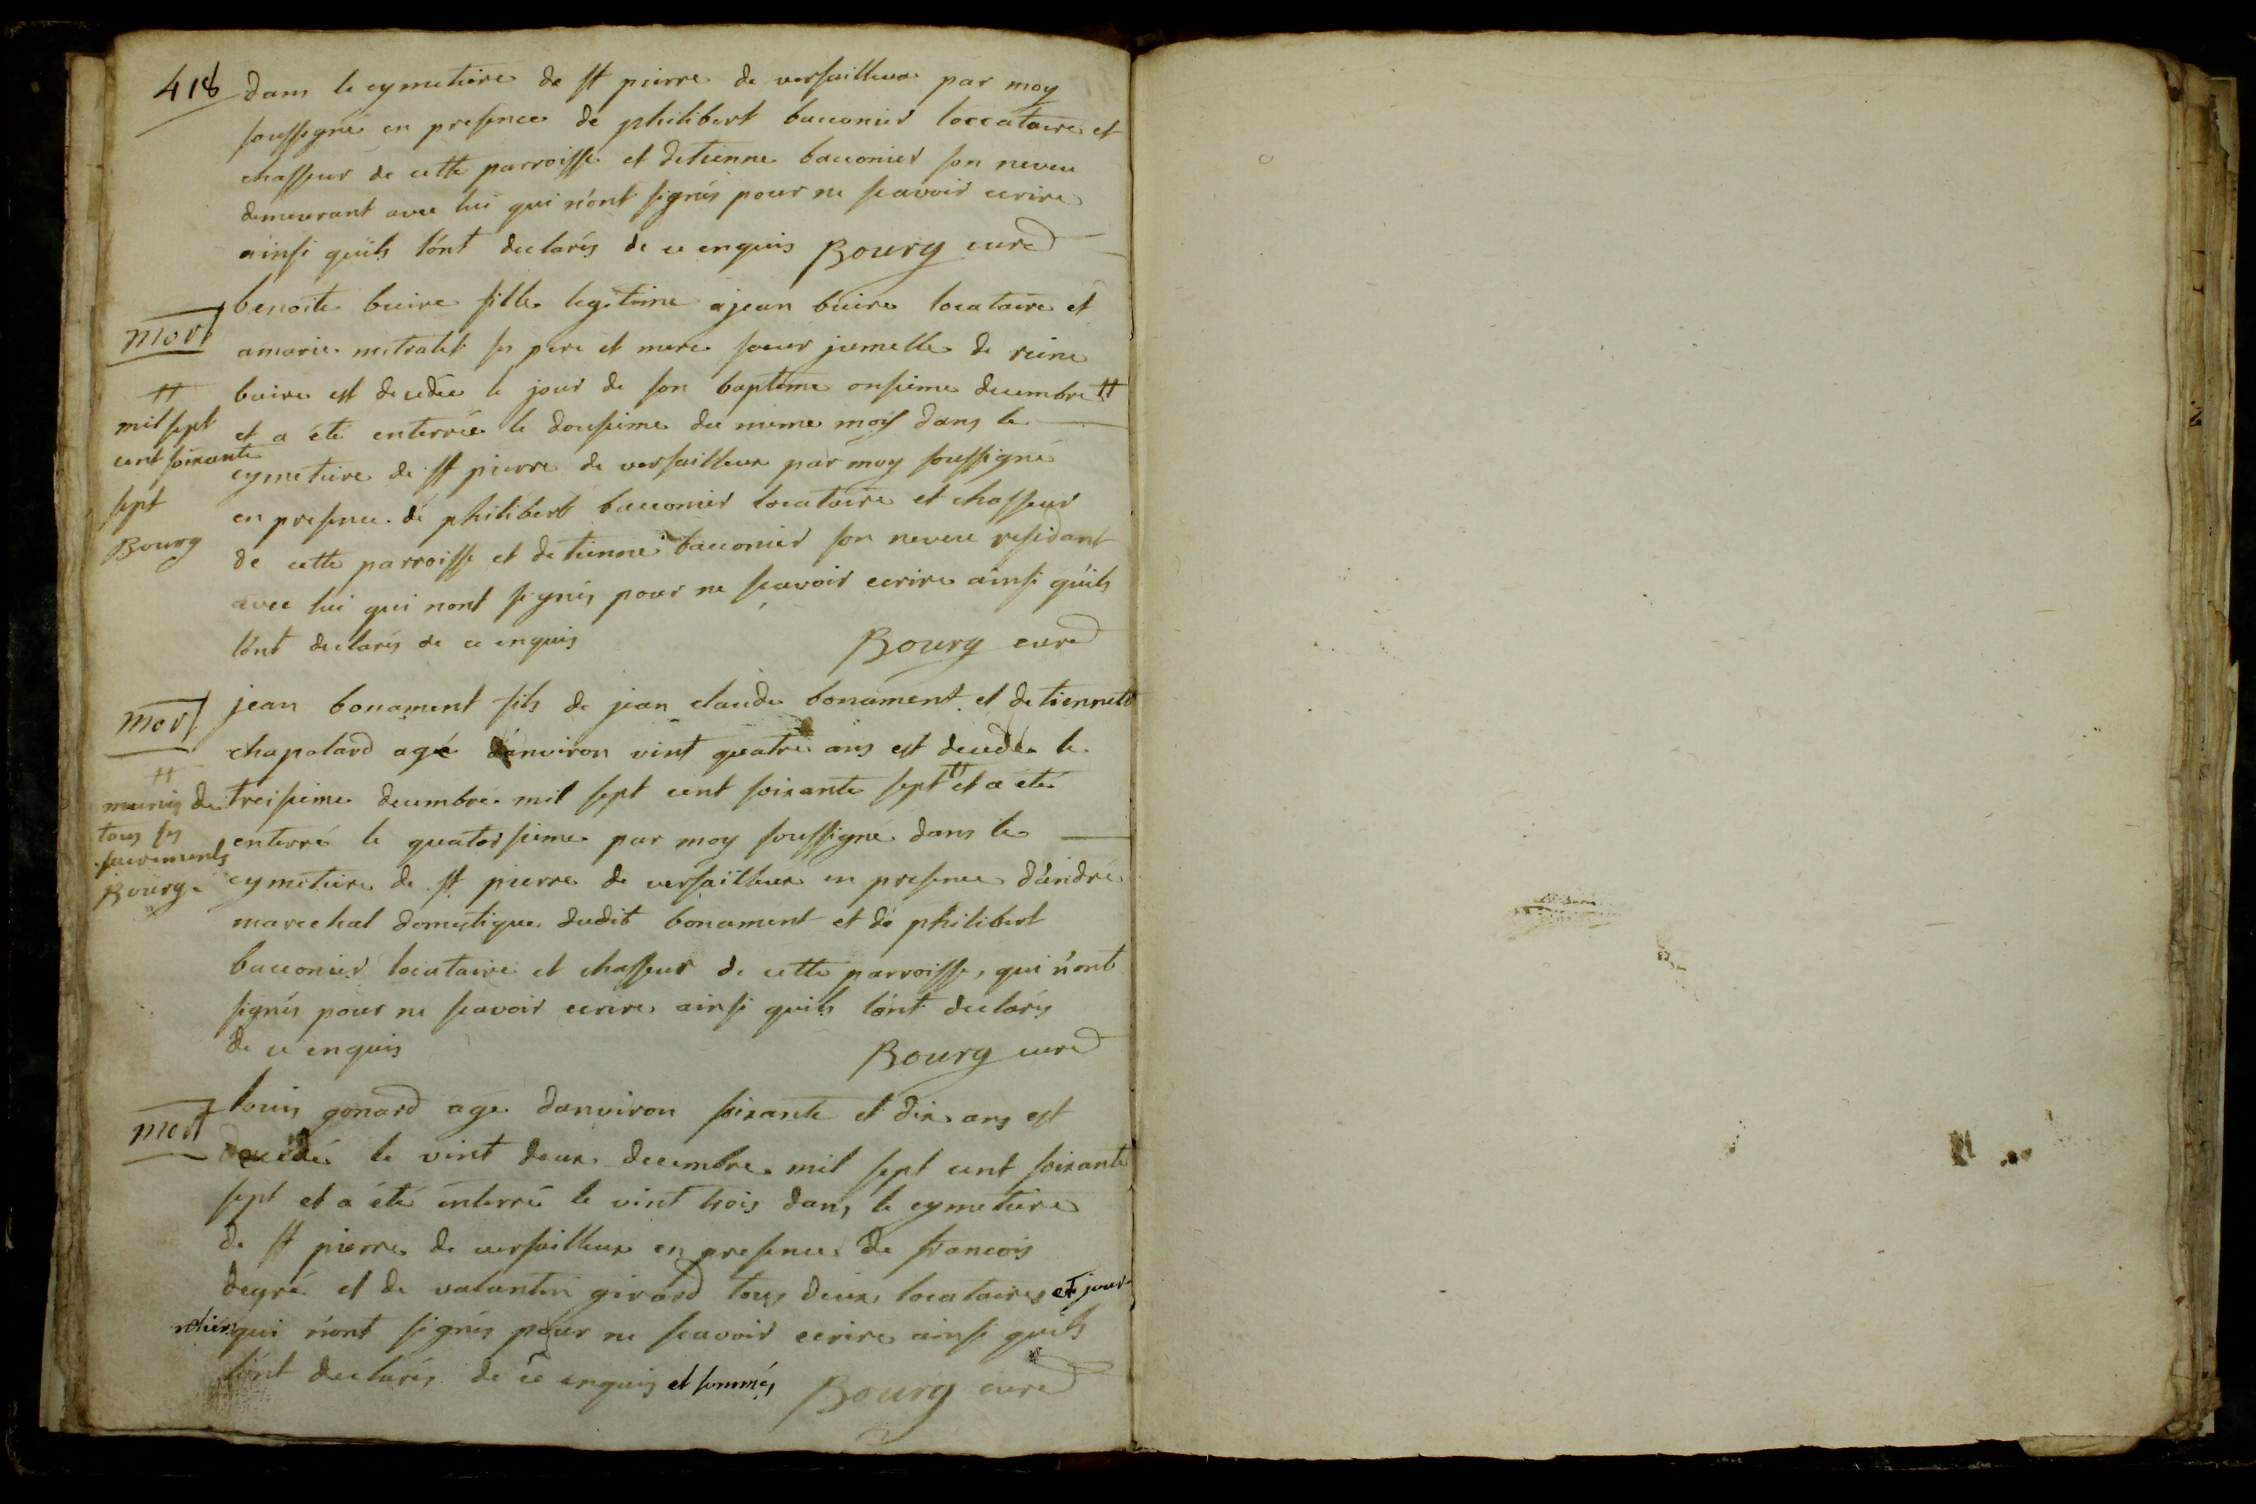 418
dans le cymetiere de st pierre de versailleux par moy
soussigné en presence de philibert bacconier loccataire et
chasseur de cette parroisse et detienne bacconier son neveu
demeurant avec lui qui n'ont signés pour ne scavoir ecrire
ainsi qu'ils l'ont declarés de ce enquis Bourg curé
mort
benoite buire fille legitime a jean buire locataire et
a marie mitralet ses pere et mere soeur jumelle de reine
buire est decedée le jour de son bapteme onsieme decembre #
et a été enterrée le dousieme du meme mois dans le
cymetiere de st pierre de versailleux par moy soussigné
en presence de philibert bacconier locataire et chasseur
de cette parroisse et detienne bacconier son neveu residant
avec lui qui nont signés pour ne scavoir ecrire ainsi qu'ils
l'ont declarés de ce enquis Bourg curé
#
mil sept
cent soixante
sept
Bourg
mort
jean bonament fils de jean claude bonament et detiennette
chapolard agé d'anviron vint quatre ans est decedé le
treisieme decembre mil sept cent soixante sept # et a été
enterré le quatorsieme par moy soussigné dans le
cymetiere de st pierre de versailleux en presence d'andré
marechal domestique dudit bonament et de philibert
bacconier locataire et chasseur de cette parroisse, qui n'ont
signés pour ne scavoir ecrire ainsi quils l'ont declarés
de ce enquis Bourg curé
#
munis de
tous ses
sacrements
Bourg
mort
louis gonard agé danviron soixante et dix ans est
decedé le vint deux decembre mil sept cent soixante
sept et a été enterré le vint trois dans le cymetiere
de st pierre de versailleux en presence de francois
degré et de valantin girard tous deux locataires et jour-
naliers qui n'ont signés pour ne scavoir ecrire ainsi quils
l'ont declarés de ce enquis et sommés Bourg curé